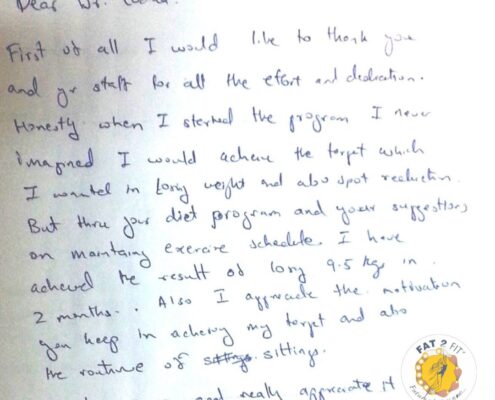 Dear Dr.
First of all I would like to thank you
and yr staff for all the effort and dedication.
Honestly when I started the program I never
imagined I would achieve the target which
I wanted in losing weight and also spot reduction.
But thru your diet program and your suggestions
on maintaing exercise schedule. I have
achieved the result of losing 9.5 kgs in
2 months.. Also I appreciate the motivation
you keep in achieving my target and also
the routine of sittings.
and really appreciate it
FAT 2 FIT